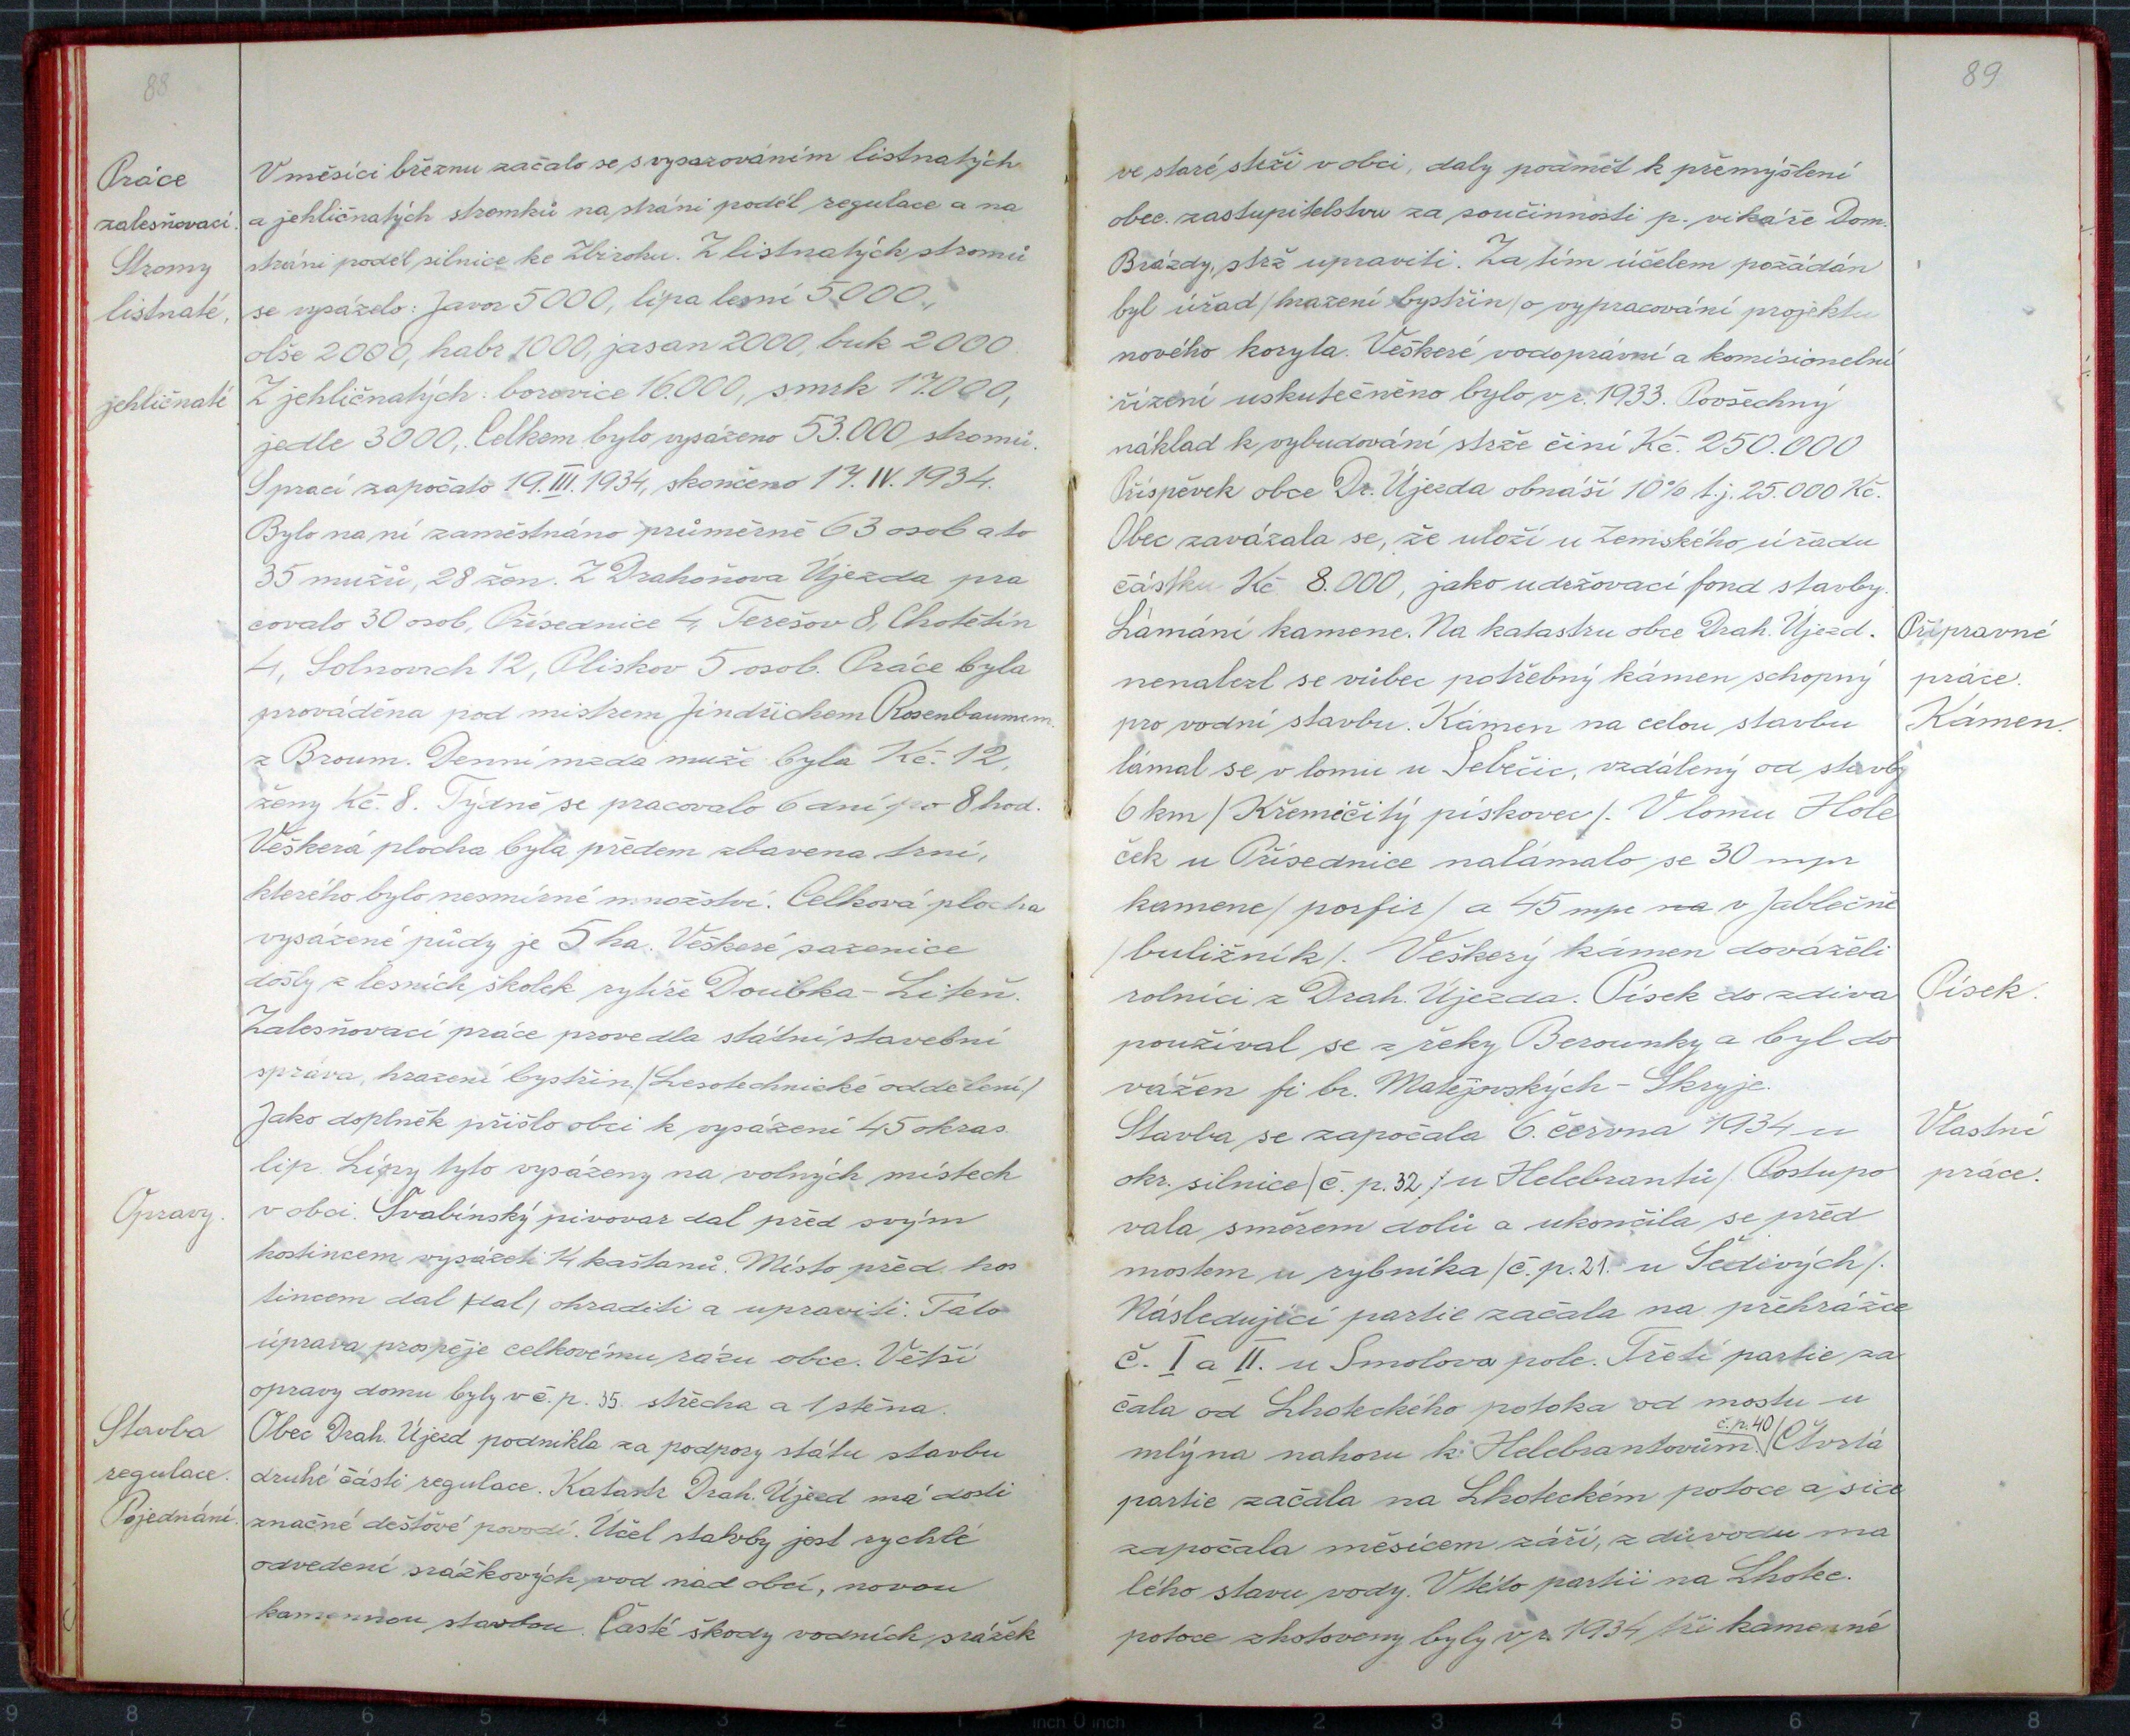 88
Práce
zalesňovací.
Stromy
listnaté,
jehličnaté
Opravy.
Stavba
regulace.
Pojednání.
V měsíci březnu začalo se s vysazováním listnatých
a jehličnatých stromků na stráni podél regulace a na
stráni podél silnice ke Zbiroku. Z listnatých stromů
se vysázelo: Javor 5000, lípa lesní 5000,
olše 2000, habr 1000, jasan 2000, buk 2000
Z jehličnatých: borovice 16.000, smrk 17.000,
jedle 3000,. Celkem bylo vysázeno 53.000 stromů.
S prací započato 19.III.1934, skončeno 17.IV.1934.
Bylo na ní zaměstnáno průměrně 63 osob a to
35 mužů, 28 žen. Z Drahoňova Újezda pra
covalo 30 osob, Přísednice 4, Terešov 8, Chotětín
4, Lolnovrch 12, Plískov 5 osob. Práce byla
prováděna pod mistrem Jindřichem Rosenbaumem.
z Broum. Denní mzda muže byla Kč. 12,
ženy Kč. 8. Týdně se pracovalo 6 dní po 8 hod.
Veškerá plocha byla předem zbavena trní,
kterého bylo nesmírné množství. Celková plocha
vysázené půdy je 5 ha. Veškeré sazenice
došly z lesních školek rytíře Doubka - Liteň.
Zalesňovací práce provedla státní stavební
správa, hrazení bystřin./Lesotechnické oddělení/
Jako doplněk přišlo obci k vysázení 45 okras.
lip. Lípy tyto vysázeny na volných místech
v obci. Švabínský pivovar dal před svým
hostincem vysázeti 14 kaštanů. Místo před hos
tincem dal /dal/ ohraditi a upraviti. Tato
úprava prospěje celkovému rázu obce. Větší
opravy domu byly v č.p. 35. střecha a 1 stěna.
Obec Drah. Újezd podnikla za podpory státu stavbu
druhé části regulace. Katastr Drah. Újezd má dosti
značné dešťové povodí. Účel stavby jest rychlé
odvedení srážkových vod nad obcí, novou
kamennou stavbou. Časté škody vodních srážek
89
ve staré strži v obci, daly podmět k přemýšlení
obec. zastupitelstvu za součinnosti p. vikáře Dom.
Brázdy, strž upraviti. Za tím účelem požádán
byl úřad /hrazení bystřin/ o vypracování projektu
nového koryta. Veškeré vodoprávní a komisionelní
řízení uskutečněno bylo v r. 1933. Povšechný
náklad k vybudování strže činí Kč. 250.000
Příspěvek obce Dr. Újezda obnáší 10% t.j. 25.000 Kč.
Obec zavázala se, že uloží u Zemského úřadu
částku Kč 8.000, jako udržovací fond stavby.
Lámání kamene. Na katastru obce Drah. Újezd.
nenalezl se vůbec potřebný kámen schopný
pro vodní stavbu. Kámen na celou stavbu
lámal se v lomu u Sebečic, vzdálený od stavby
6 km /Křeměčitý pískovec/. V lomu Hole
ček u Přísednice nalámalo se 30 mpr
kamene /porfir/ a 45 mpr na v Jablečně
/buližník/. Veškerý kámen dováželi
rolníci z Drah. Újezda. Písek do zdiva
používal se z řeky Berounky a byl do
vážen fi br. Matějovských - Skryje.
Stavba se započala 6. června 1934 u
okr. silnice /č. p. 32 / u Helebrantů/ Postupo
vala směrem dolů a ukončila se před
mostem u rybníka /č. p. 21. u Šedivých/.
Následující partie začala na přehrážce
č. I a II. u Smolova pole. Třetí partie za
čala od Lhoteckého potoka od mostu u
mlýna nahoru k Helebrantovům. č.p. 40/ Čtvrtá
partie začala na Lhoteckém potoce a sice
započala měsícem září, z důvodu ma
lého stavu vody. V této partii na Lhotec.
potoce zhotoveny byly v r. 1934 tři kamenné
Přípravné
práce.
Kámen.
Písek.
Vlastní
práce.